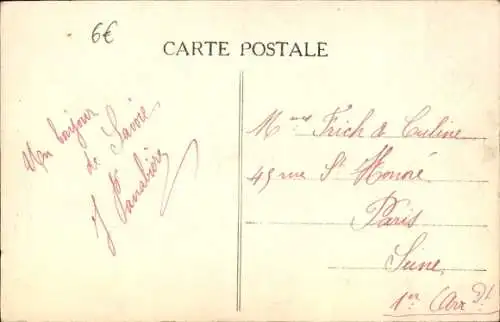 6€
CARTE POSTALE
Un bonjour
de Savoie
J
Mmes Frich & Culine
45 rue St Honoré
Paris
Seine
1er Arrdt